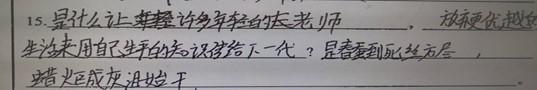 15. 是什么让许多年轻的老师，放弃更优越的
生活来用自己生平的知识传给下一代？是春蚕到死丝方尽，
蜡炬成灰泪始干。